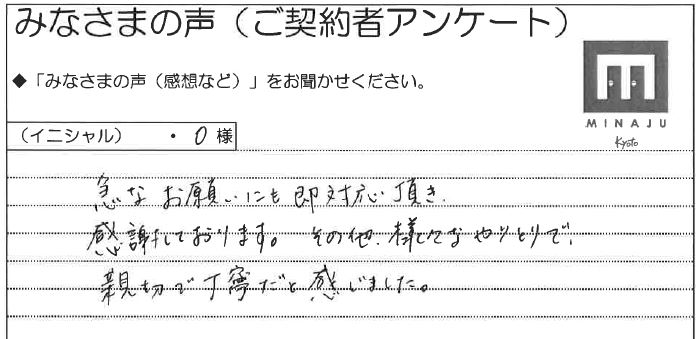 みなさまの声（ご契約者アンケート）
◆「みなさまの声（感想など）」をお聞かせください。
MINAJU
Kyoto
（イニシャル）　・O様
急なお願いにも即対応頂き、
感謝しております。その他、様々なやりとりで、
親切で丁寧だと感じました。